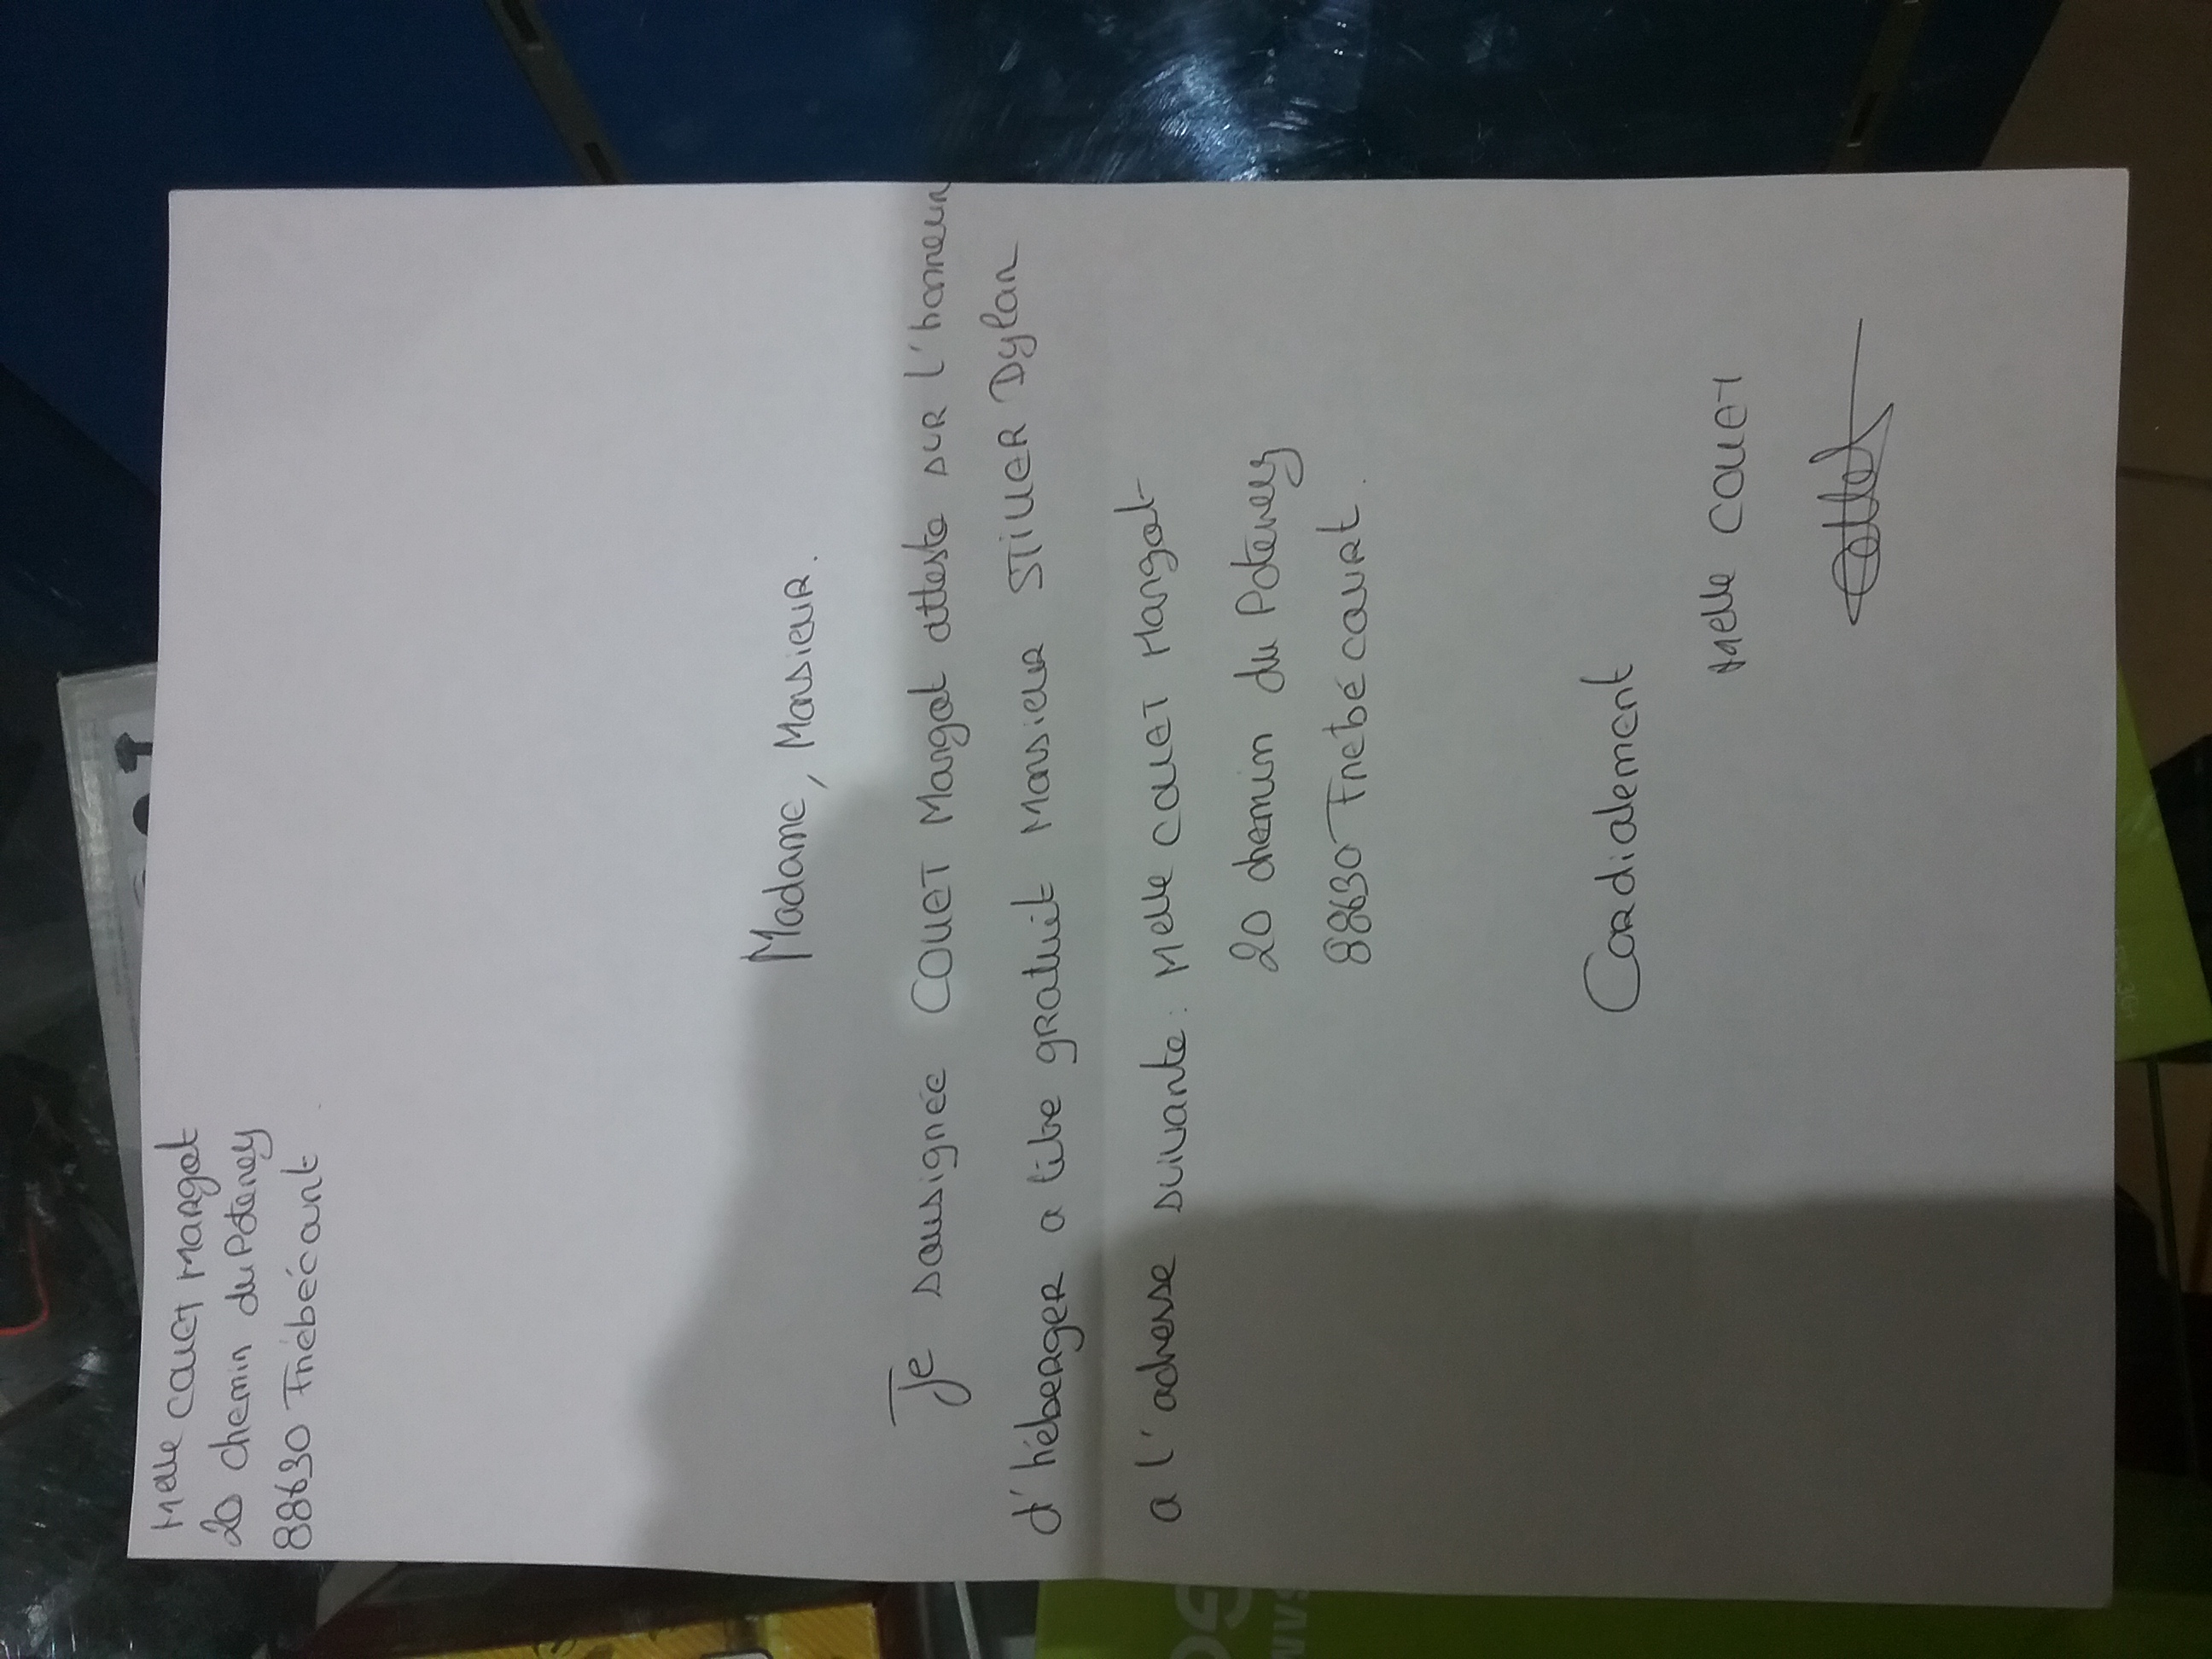 Melle COUET MARGOT
20 chemin du Poteney
88630 Friebécourt
Madame, Monsieur.
Je soussignée COUET Margot atteste sur l'honneur
d'héberger a titre gratuit Monsieur STILLER Dylan
a l'adresse suivante : Melle COUET Margot
20 chemin du Poteney
88630 Friebécourt.
Cordialement
Melle COUET